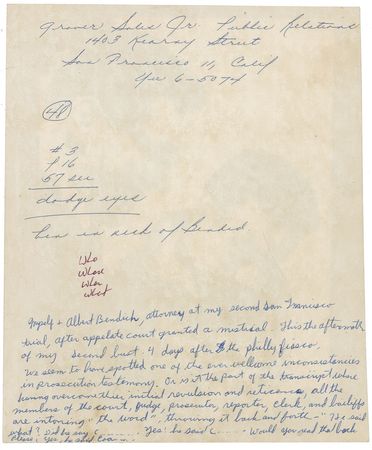 Grover Sales Jr. Public Relations
1403 Kearny Street
San Francisco 11, Calif
Yu 6-5074
48
#3
P 16
57 sec
dodge eyes
in neck of
Who
Where
When
What
Myself + Albert Bendich, attorney at my second San Francisco
trial, after appelate court granted a mistrial. This the aftermath
of my second bust. 4 days after the philly fiasco.
We seem to have spotted one of the ever welcome inconsistencies
in prosecution testamony. Or is it the part of the transcript where
having overcome their initial revulsion and reticence, all the
members of the court, judge, prosecutor, reporter, clerk, and bailiffs
are intoning "the word", throwing it back and forth - "He said
what? Did he say C...... "Yes! he said C..... Would you read that back
please? Yes, he said